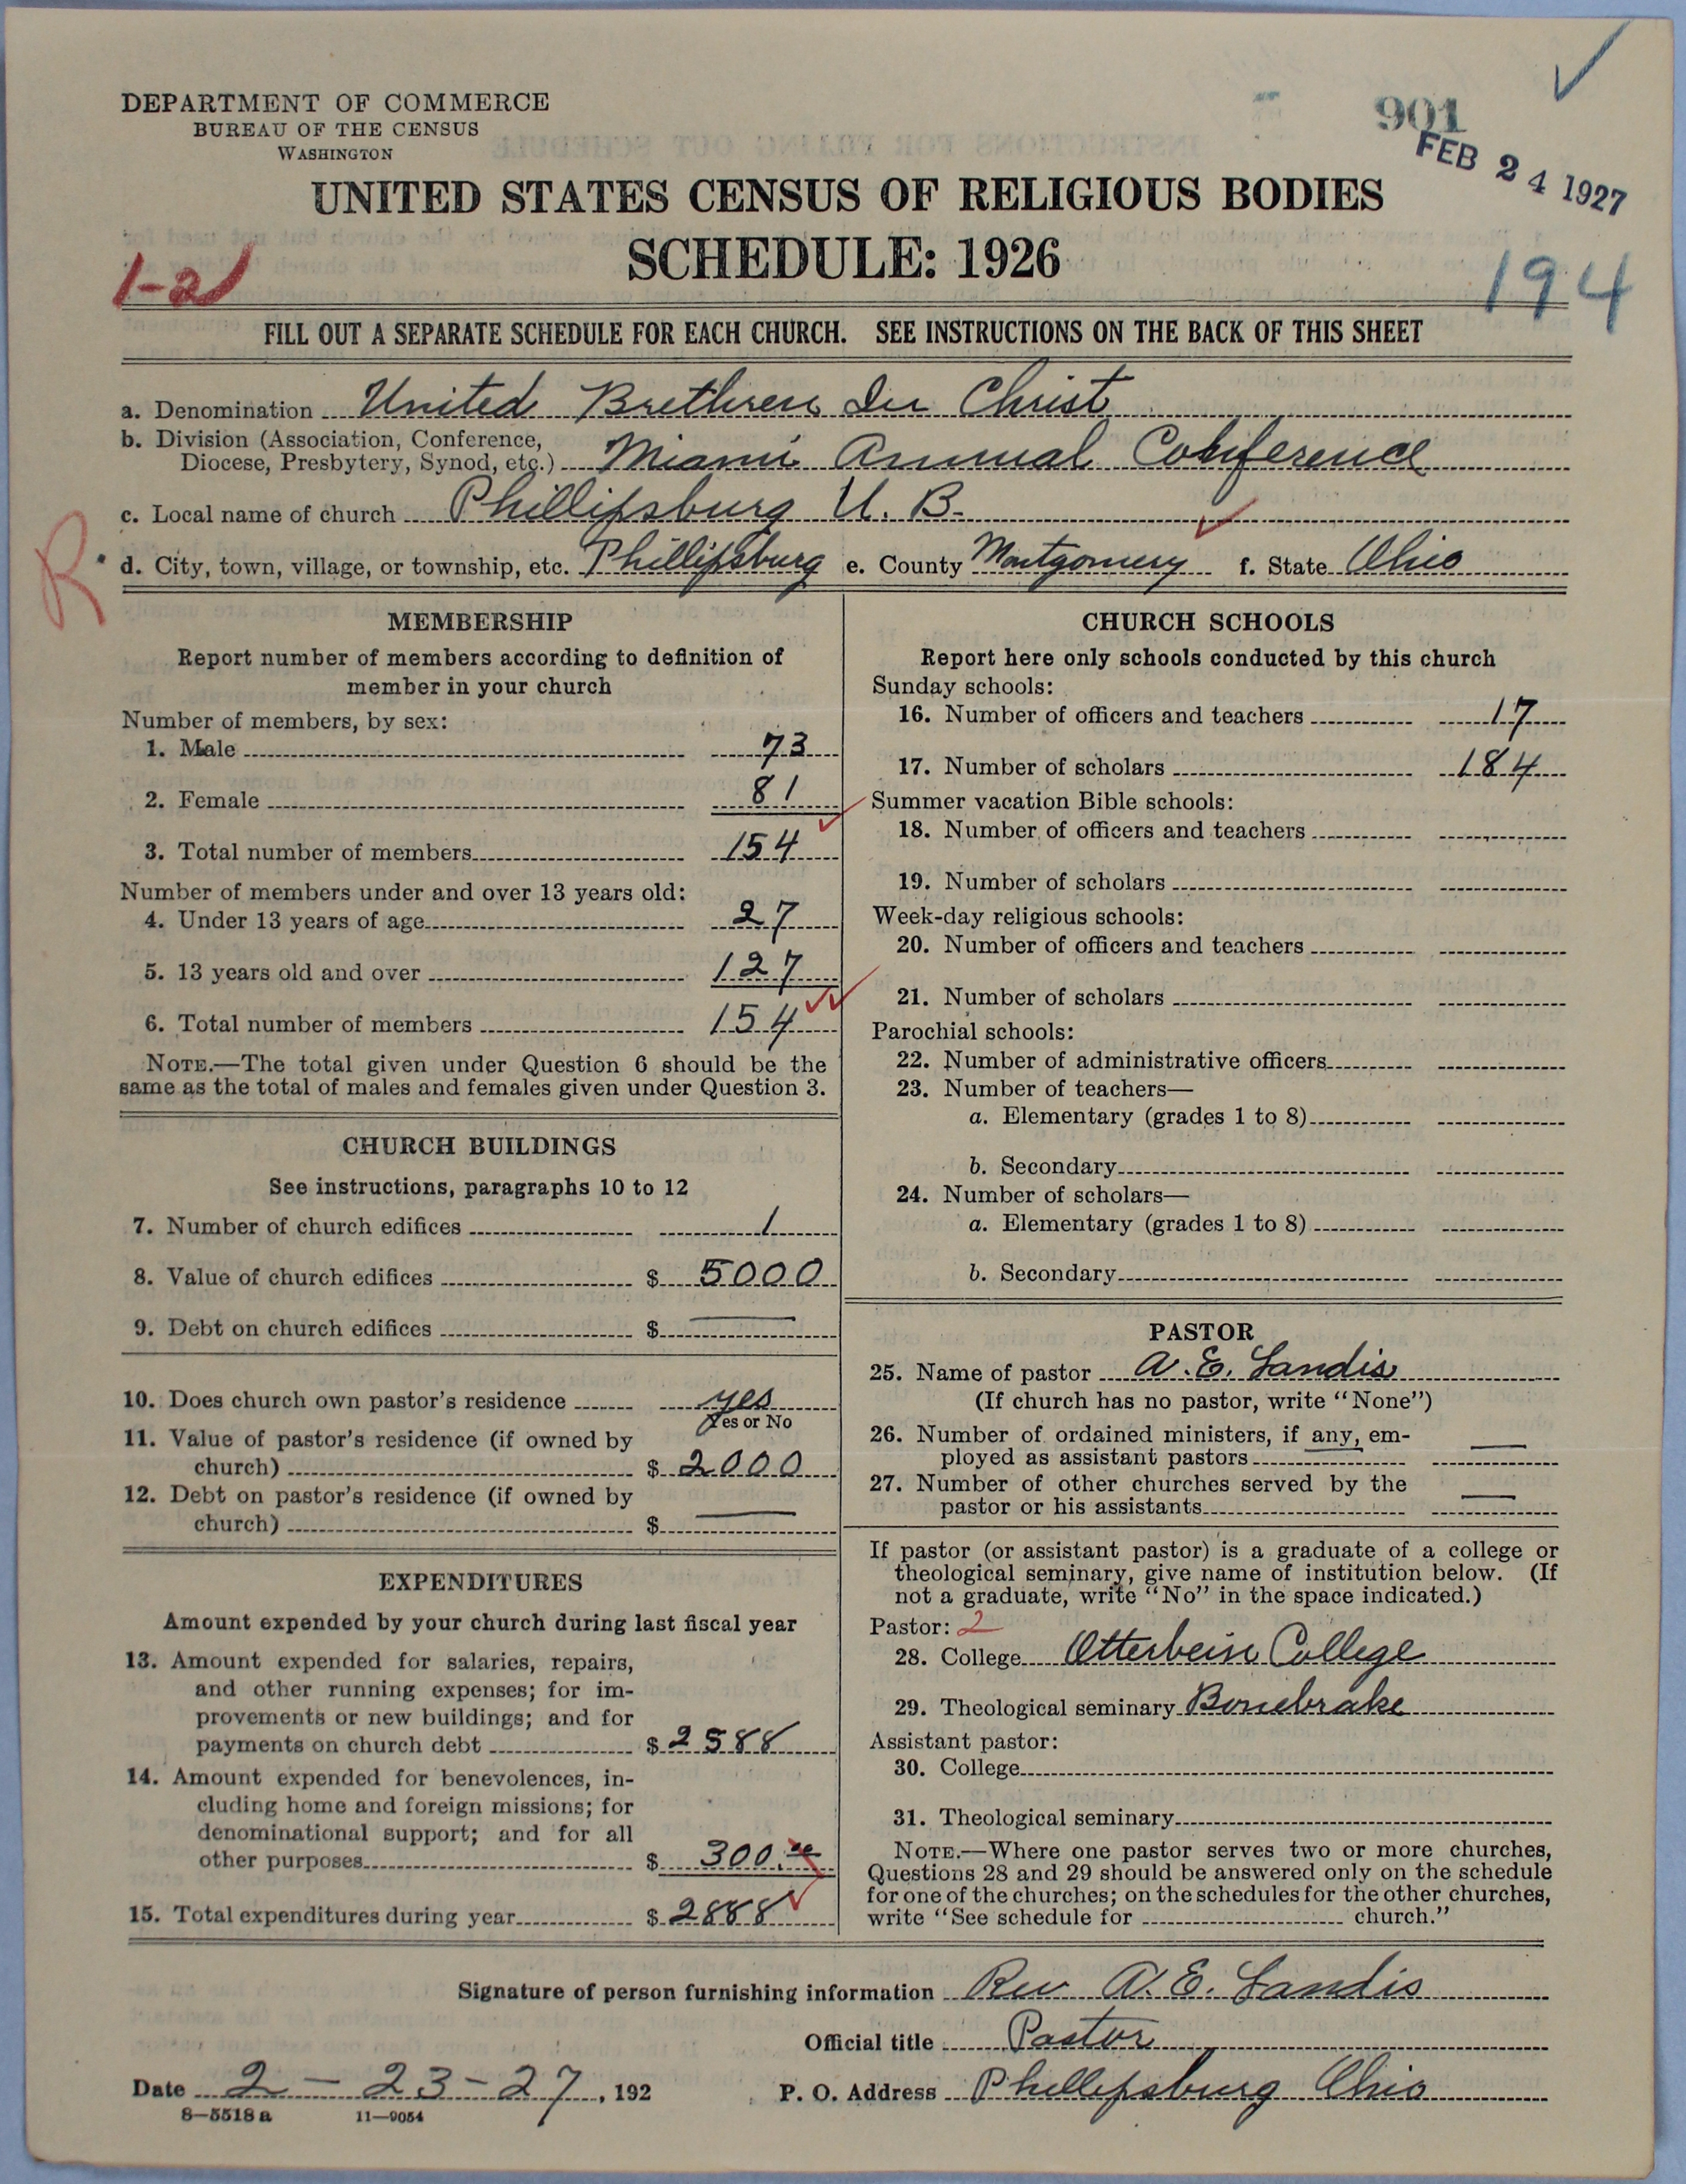 DEPARTMENT OF COMMERCE
BUREAU OF THE CENSUS
WASHINGTON
901
FEB 24 1927
UNITED STATES CENSUS OF RELIGIOUS BODIES
SCHEDULE: 1926
1-21
194
FILL OUT A SEPARATE SCHEDULE FOR EACH CHURCH. SEE INSTRUCTIONS ON THE BACK OF THIS SHEET
a. Denomination United Brethren In Christ
b. Division (Association, Conference,
Diocese, Presbytery, Synod, etc.) Miami Annual Conference
c. Local name of church Phillipsburg U. B.
R
d. City, town, village, or township, etc. Phillipsburg e. County Montgomery f. State Ohio
MEMBERSHIP
Report number of members according to definition of
member in your church
Number of members, by sex:
1. Male 73
2. Female 81
3. Total number of members 154
Number of members under and over 13 years old:
4. Under 13 years of age 27
5. 13 years old and over 127
6. Total number of members 154
NOTE.—The total given under Question 6 should be the
same as the total of males and females given under Question 3.
CHURCH BUILDINGS
See instructions, paragraphs 10 to 12
7. Number of church edifices 1
8. Value of church edifices $ 5000
9. Debt on church edifices $ —
10. Does church own pastor's residence yes
Yes or No
11. Value of pastor's residence (if owned by
church) $ 2000
12. Debt on pastor's residence (if owned by
church) $ —
EXPENDITURES
Amount expended by your church during last fiscal year
13. Amount expended for salaries, repairs,
and other running expenses; for im-
provements or new buildings; and for
payments on church debt $ 2588
14. Amount expended for benevolences, in-
cluding home and foreign missions; for
denominational support; and for all
other purposes $ 300.00
15. Total expenditures during year $ 2888
CHURCH SCHOOLS
Report here only schools conducted by this church
Sunday schools:
16. Number of officers and teachers 17
17. Number of scholars 184
Summer vacation Bible schools:
18. Number of officers and teachers
19. Number of scholars
Week-day religious schools:
20. Number of officers and teachers
21. Number of scholars
Parochial schools:
22. Number of administrative officers
23. Number of teachers—
a. Elementary (grades 1 to 8)
b. Secondary
24. Number of scholars—
a. Elementary (grades 1 to 8)
b. Secondary
PASTOR
25. Name of pastor A. E. Landis
(If church has no pastor, write "None")
26. Number of ordained ministers, if any, em-
ployed as assistant pastors —
27. Number of other churches served by the
pastor or his assistants —
If pastor (or assistant pastor) is a graduate of a college or
theological seminary, give name of institution below. (If
not a graduate, write "No" in the space indicated.)
Pastor: 2
28. College Otterbein College
29. Theological seminary Bonebrake
Assistant pastor:
30. College
31. Theological seminary
NOTE.—Where one pastor serves two or more churches,
Questions 28 and 29 should be answered only on the schedule
for one of the churches; on the schedules for the other churches,
write "See schedule for church."
Signature of person furnishing information Rev A. E. Landis
Official title Pastor
Date 2-23-27, 192 P. O. Address Phillipsburg Ohio
8—5518 a 11—9054